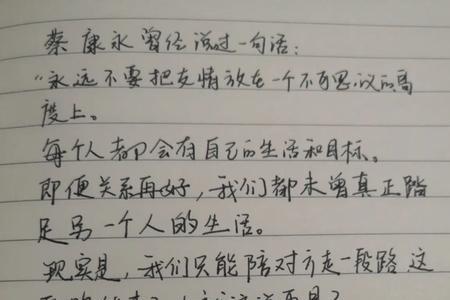 蔡康永曾经说过一句话：
“永远不要把友情放在一个不可思议的高
度上。
每个人都会有自己的生活和目标。
即便关系再好，我们都未曾真正踏
足另一个人的生活。
现实是，我们只能陪对方走一段路，这